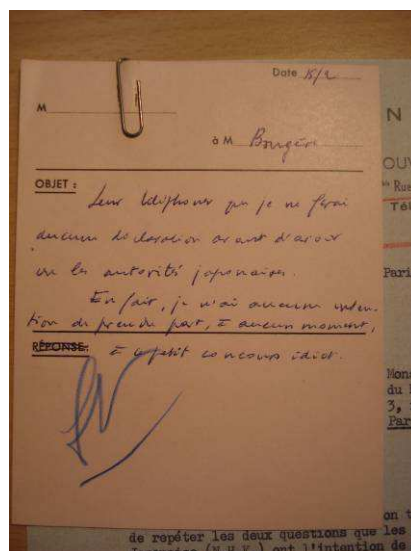 Date 15/2
M
à M Bougère
OBJET :
Leur téléphoner que je ne ferai
aucune déclaration avant d'avoir
vu les autorités japonaises.
En fait, je n'ai aucune inten-
tion de prendre part, à aucun moment,
RÉPONSE: à ce petit concours idiot.
N
OUV
Rue
Tél
Pari
Mons
du
3,
Par
on t
de repéter les deux questions que les
(N.H.K.) ont l'intention de